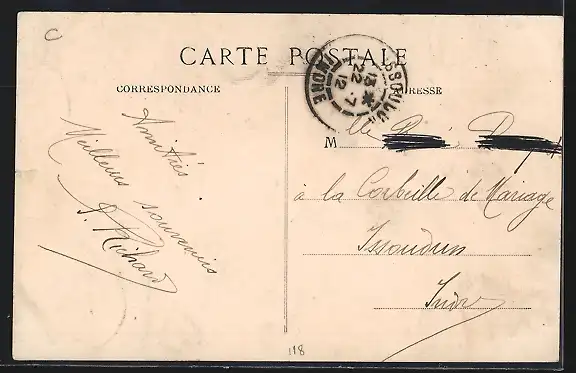 C
CARTE POSTALE
CORRESPONDANCE
ADRESSE
ISSOUDUN
13 *
22 -7
12
INDRE
Amitiés
Meilleurs souvenirs
P. Richard
M lle
à la Corbeille de Mariage
Issoudun
Indre
118